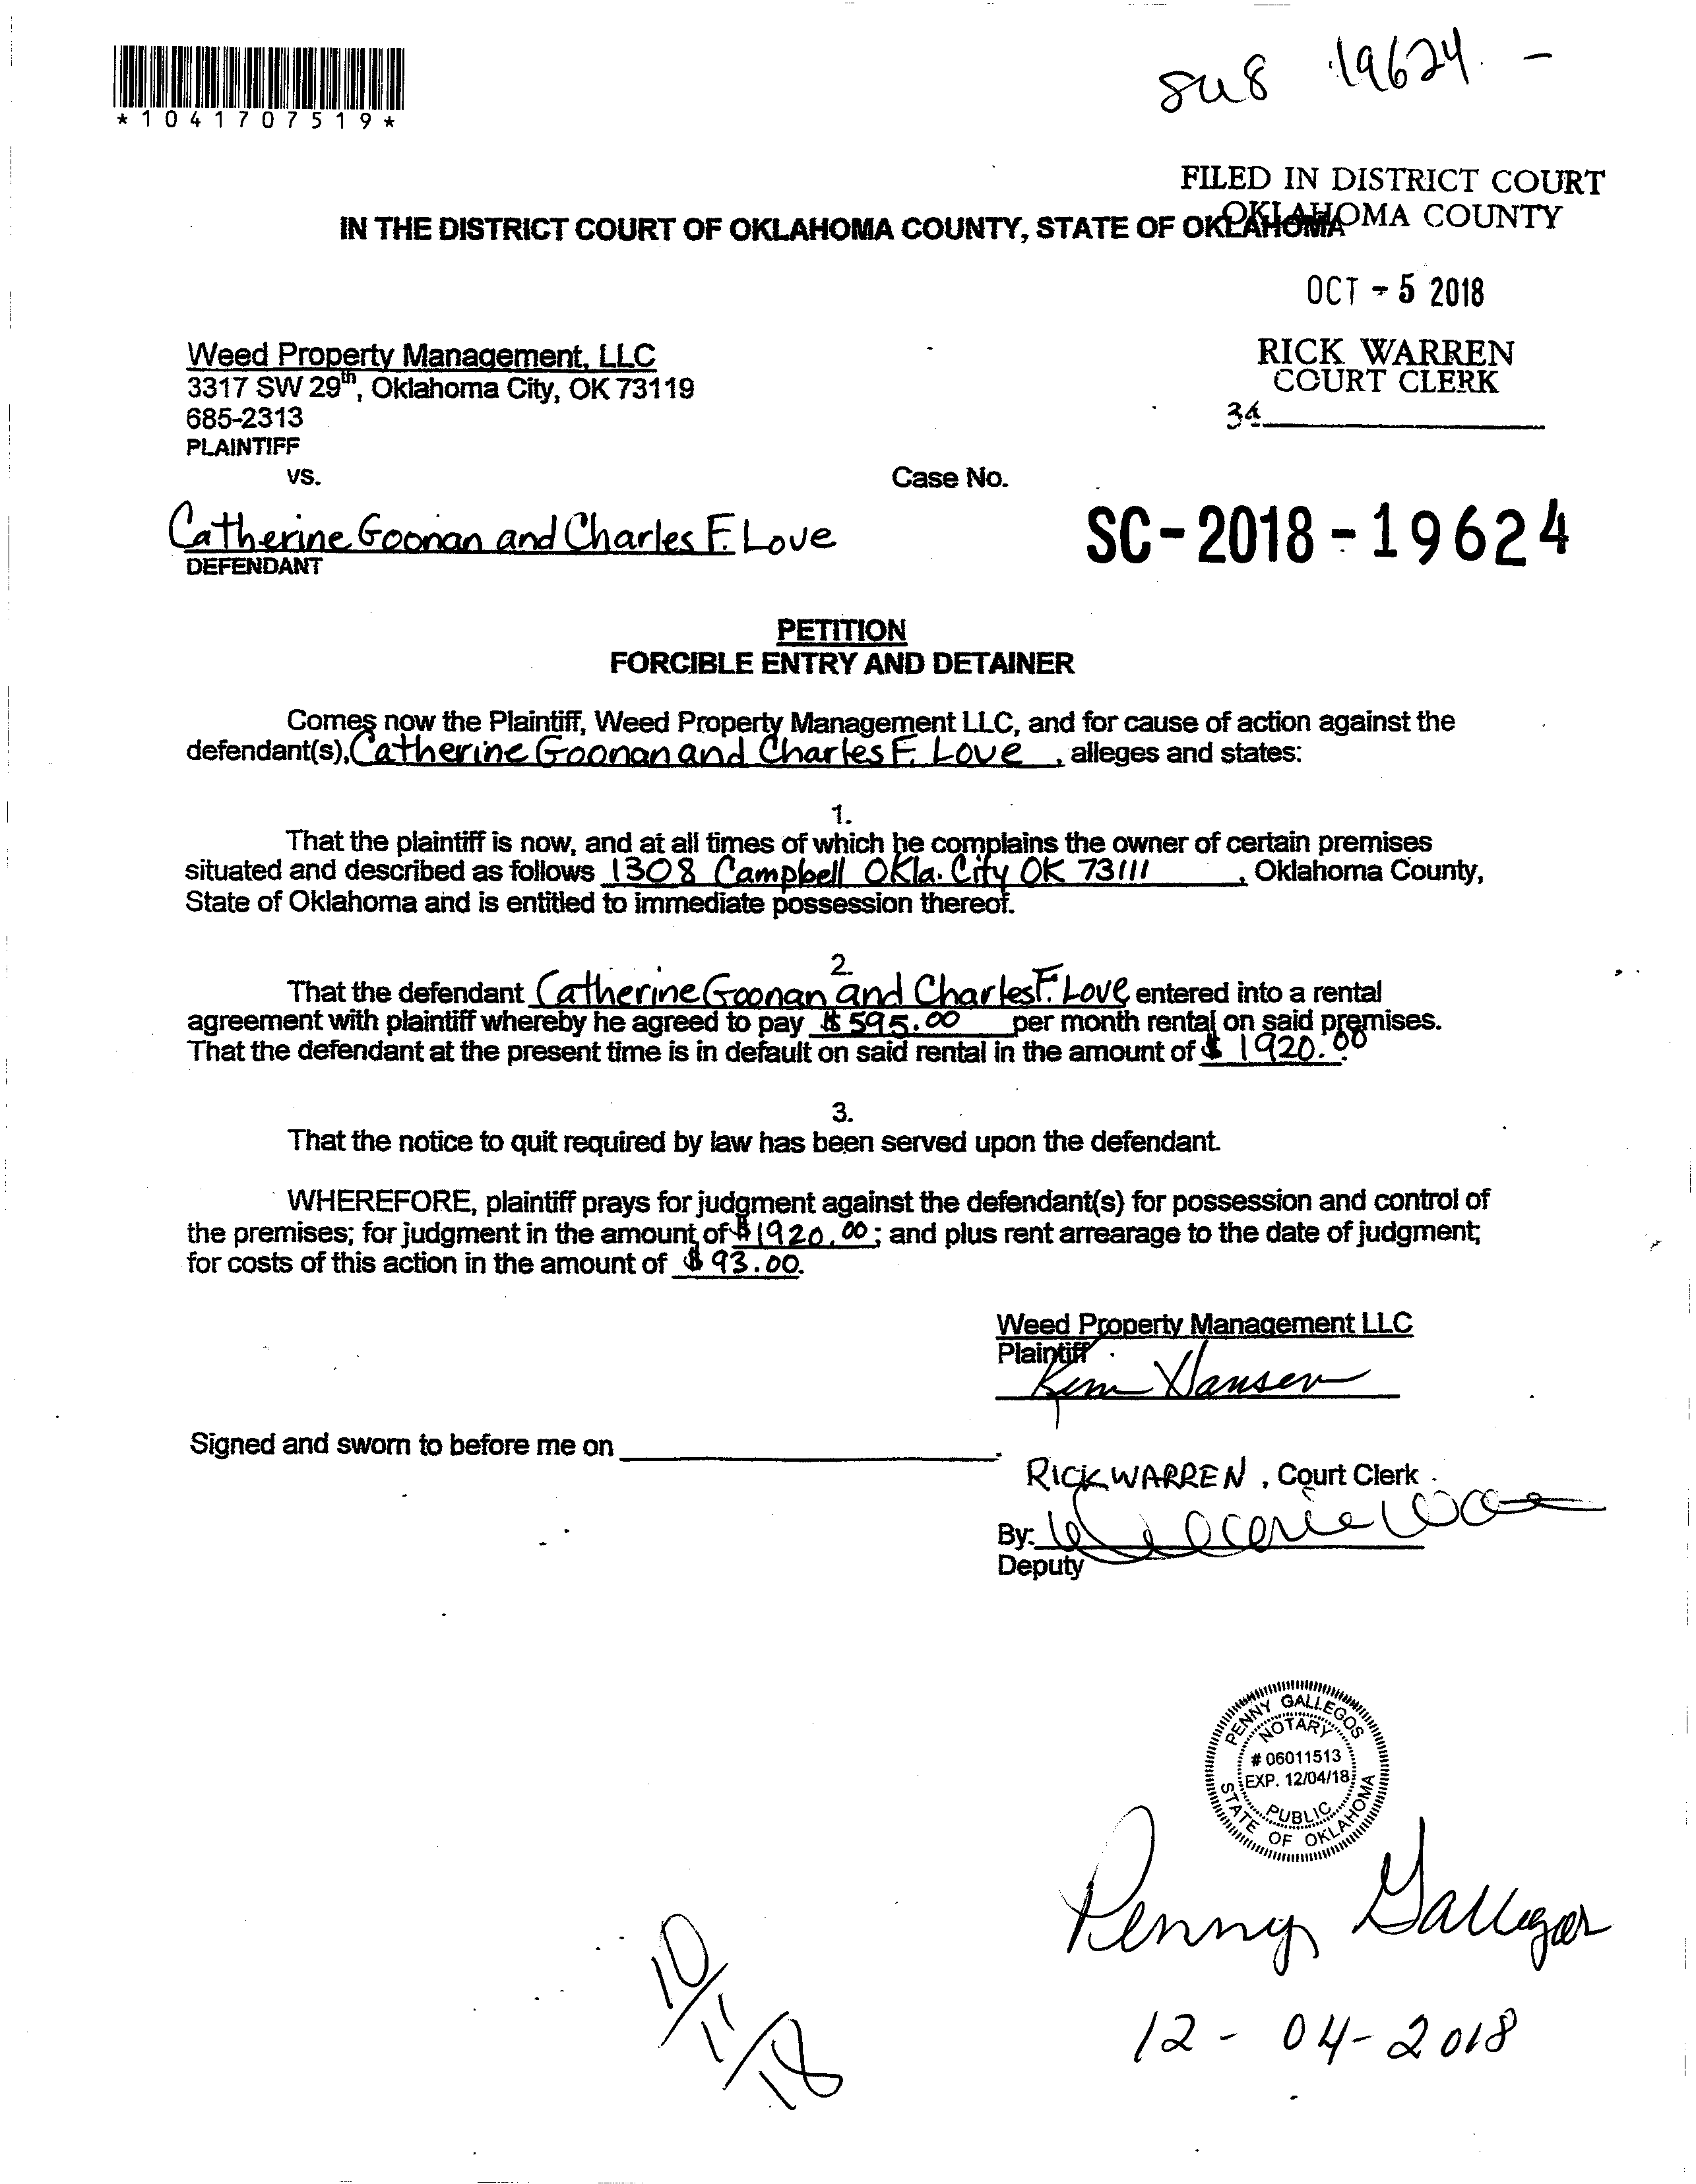 *1041707519*
su8 19624. -
FILED IN DISTRICT COURT
OKLAHOMA COUNTY
IN THE DISTRICT COURT OF OKLAHOMA COUNTY, STATE OF OKLAHOMA
OCT - 5 2018
Weed Property Management, LLC
3317 SW 29th, Oklahoma City, OK 73119
685-2313
PLAINTIFF
RICK WARREN
COURT CLERK
34
vs.
Case No.
Catherine Goonan and Charles F. Love
DEFENDANT
SC-2018-19624
PETITION
FORCIBLE ENTRY AND DETAINER
Comes now the Plaintiff, Weed Property Management LLC, and for cause of action against the
defendant(s), Catherine Goonan and Charles F. Love, alleges and states:
1.
That the plaintiff is now, and at all times of which he complains the owner of certain premises
situated and described as follows 1308 Campbell Okla. City OK 73111, Oklahoma County,
State of Oklahoma and is entitled to immediate possession thereof.
2.
That the defendant Catherine Goonan and Charles F. Love entered into a rental
agreement with plaintiff whereby he agreed to pay $595.00 per month rental on said premises.
That the defendant at the present time is in default on said rental in the amount of $1920.00.
3.
That the notice to quit required by law has been served upon the defendant.
WHEREFORE, plaintiff prays for judgment against the defendant(s) for possession and control of
the premises; for judgment in the amount of $1920.00; and plus rent arrearage to the date of judgment;
for costs of this action in the amount of $93.00.
Weed Property Management LLC
Plaintiff
Kim Hansen
Signed and sworn to before me on
RICK WARREN, Court Clerk
By:
Deputy
PENNY GALLEGOS
NOTARY
# 06011513
EXP. 12/04/18
PUBLIC
STATE OF OKLAHOMA
Penny Gallegos
10/11/18
12-04-2018